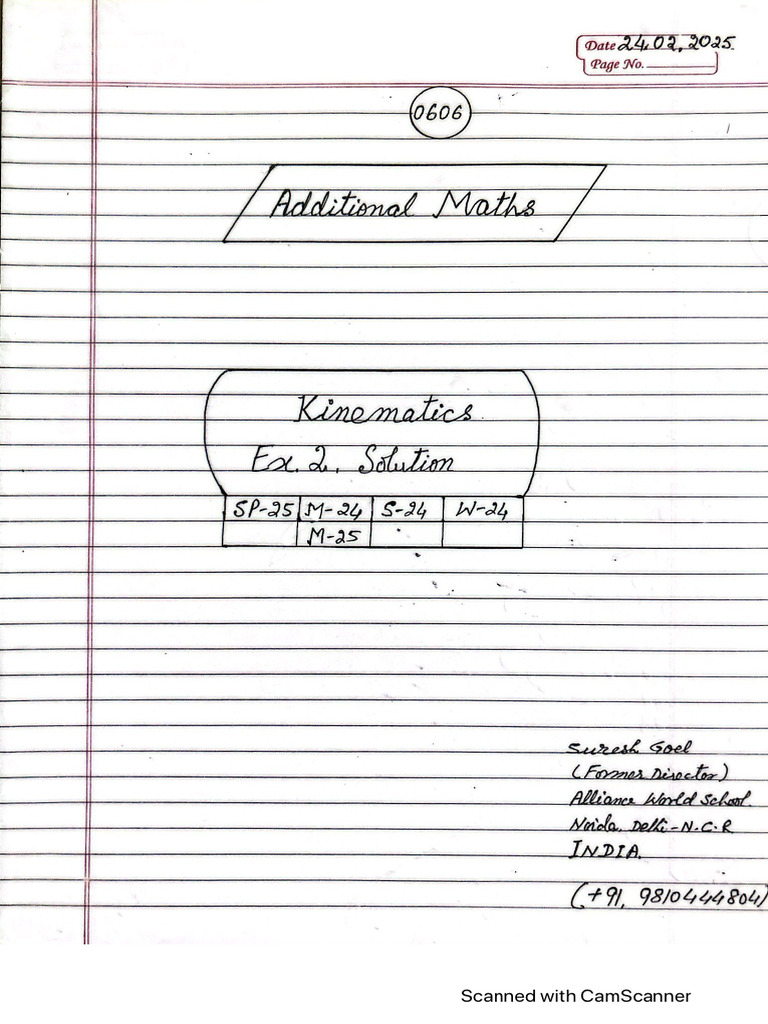 Date 24.02.2025.
Page No.
0606
Additional Maths
Kinematics
Ex. 2. Solution
SP-25 M-24 S-24 W-24
M-25
Suresh Goel
(Former Director)
Alliance World School.
Noida, Delhi-N.C.R
INDIA.
(+91, 9810444804)
Scanned with CamScanner